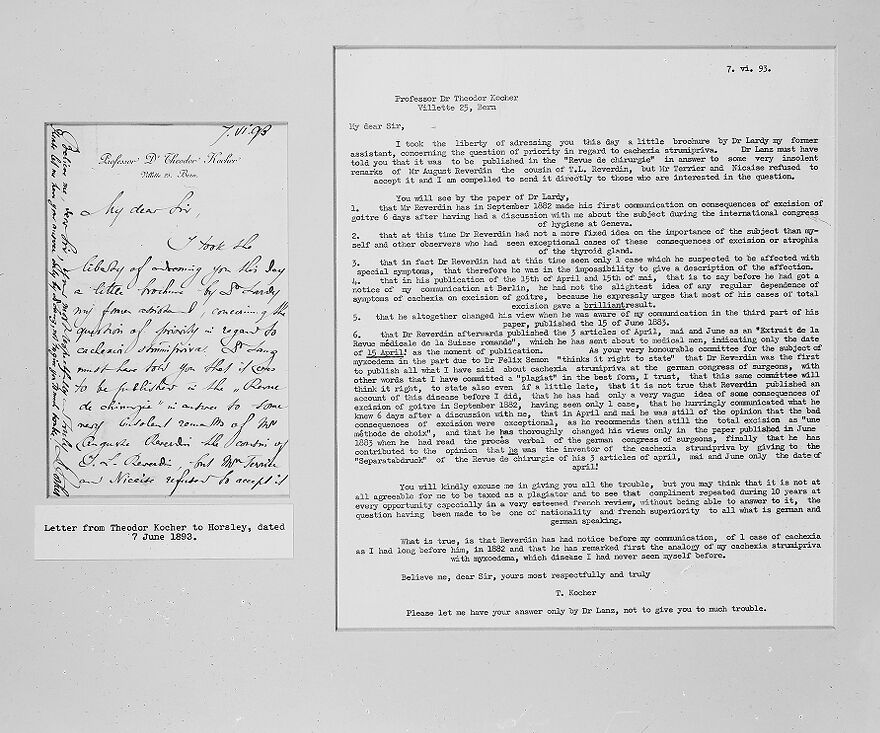 7.VI.93
Professor Dr Theodor Kocher
Villette 25. Bern.
My dear Sir
I took the
liberty of adressing you this day
a little brochure by Dr Lardy
my former assistant, concerning the
question of priority in regard to
cachexia strumipriva. Dr Lanz
must have told you that it was
to be published in the „Revue
de chirurgie" in answer to some
very insolent remarks of Mr
Auguste Reverdin the cousin of
T. L. Reverdin, but Mr Terrier
and Nicaise refused to accept it
Believe me, dear Sir, yours most respectfully and truly Th. Kocher
Please let me have your answer only by Dr Lanz, not to give you to much trouble.
Letter from Theodor Kocher to Horsley, dated
7 June 1893.
7. vi. 93.
Professor Dr Theodor Kocher
Villette 25, Bern
My dear Sir,
I took the liberty of adressing you this day a little brochure by Dr Lardy my former
assistant, concerning the question of priority in regard to cachexia strumipriva. Dr Lanz must have
told you that it was to be published in the "Revue de chirurgie" in answer to some very insolent
remarks of Mr August Reverdin the cousin of T.L. Reverdin, but Mr Terrier and Nicaise refused to
accept it and I am compelled to send it directly to those who are interested in the question.
You will see by the paper of Dr Lardy,
1. that Mr Reverdin has in September 1882 made his first communication on consequences of excision of
goitre 6 days after having had a discussion with me about the subject during the international congress
of hygiene at Geneva.
2. that at this time Dr Reverdin had not a more fixed idea on the importance of the subject than my-
self and other observers who had seen exceptional cases of these consequences of excision or atrophia
of the thyroid gland.
3. that in fact Dr Reverdin had at this time seen only 1 case which he suspected to be affected with
special symptoms, that therefore he was in the impossibility to give a description of the affection.
4. that in his publication of the 15th of April and 15th of mai, that is to say before he had got a
notice of my communication at Berlin, he had not the slightest idea of any regular dependence of
symptoms of cachexia on excision of goitre, because he expressly urges that most of his cases of total
excision gave a brilliantresult.
5. that he altogether changed his view when he was aware of my communication in the third part of his
paper, published the 15 of June 1883.
6. that Dr Reverdin afterwards published the 3 articles of April, mai and June as an "Extrait de la
Revue médicale de la Suisse romande", which he has sent about to medical men, indicating only the date
of 15 April! as the moment of publication. As your very honourable committee for the subject of
myxoedema in the part due to Dr Felix Semon "thinks it right to state" that Dr Reverdin was the first
to publish all what I have said about cachexia strumipriva at the german congress of surgeons, with
other words that I have committed a "plagiat" in the best form, I trust, that this same committee will
think it right, to state also even if a little late, that it is not true that Reverdin published an
account of this disease before I did, that he has had only a very vague idea of some consequences of
excision of goitre in September 1882, having seen only 1 case, that he hurringly communicated what he
knew 6 days after a discussion with me, that in April and mai he was still of the opinion that the bad
consequences of excision were exceptional, as he recommends then still the total excision as "une
méthode de choix", and that he has thoroughly changed his views only in the paper published in June
1883 when he had read the procès verbal of the german congress of surgeons, finally that he has
contributed to the opinion that he was the inventor of the cachexia strumipriva by giving to the
"Separatabdruck" of the Revue de chirurgie of his 3 articles of april, mai and June only the date of
april!
You will kindly excuse me in giving you all the trouble, but you may think that it is not at
all agreeable for me to be taxed as a plagiator and to see that compliment repeated during 10 years at
every opportunity especially in a very esteemed french review, without being able to answer to it, the
question having been made to be one of nationality and french superiority to all what is german and
german speaking.
What is true, is that Reverdin has had notice before my communication, of 1 case of cachexia
as I had long before him, in 1882 and that he has remarked first the analogy of my cachexia strumipriva
with myxoedema, which disease I had never seen myself before.
Believe me, dear Sir, yours most respectfully and truly
T. Kocher
Please let me have your answer only by Dr Lanz, not to give you to much trouble.